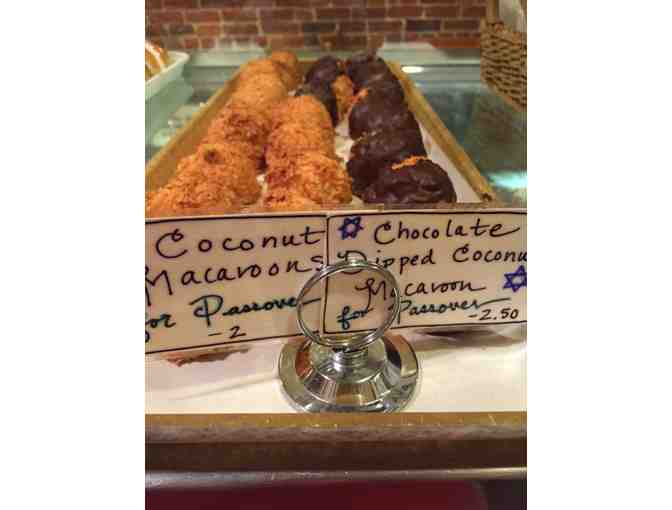 Coconut
Macaroons
for Passover
-2
Chocolate
Dipped Coconu
Macaroon
for Passover
-2.50